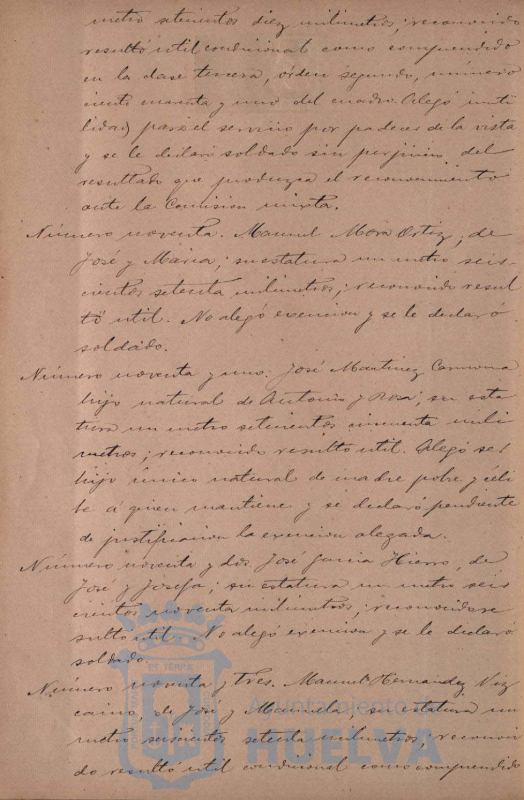 metro setecientos diez milimetros; reconocido
resultó util condicional como comprendido
en la clase tercera, órden segundo, número
ciento cuarenta y uno del cuadro. Alegó inuti
lidad para el servicio por padecer de la vista
y se le declaró soldado sin perjuicio del
resultado que produzca el reconocimiento
ante la Comision mixta.
Número noventa. Manuel Mora Ortiz, de
José y Maria; su estatura un metro seis-
cientos setenta milimetros; reconocido resul
tó util. No alegó exencion y se le declaró
soldado.
Número noventa y uno. José Martinez Carmona
hijo natural de Antonio y Rosa; su esta
tura un metro setecientos cincuenta mili
metros; reconocido resultó util. Alegó ser
hijo único natural de madre pobre y céli
be á quien mantiene y se declaró pendiente
de justificacion la exencion alegada.
Número noventa y dos. José Garcia Hierro, de
José y Josefa; su estatura un metro seis
cientos noventa milimetros; reconocido re
sultó util. No alegó exencion y se le declaró
soldado.
Número noventa y tres. Manuel Hernandez Viz
caino, de José y Manuela; su estatura un
metro seiscientos setenta milimetros; reconoci
do resultó util condicional como comprendido
Ayuntamiento de
HUELVA